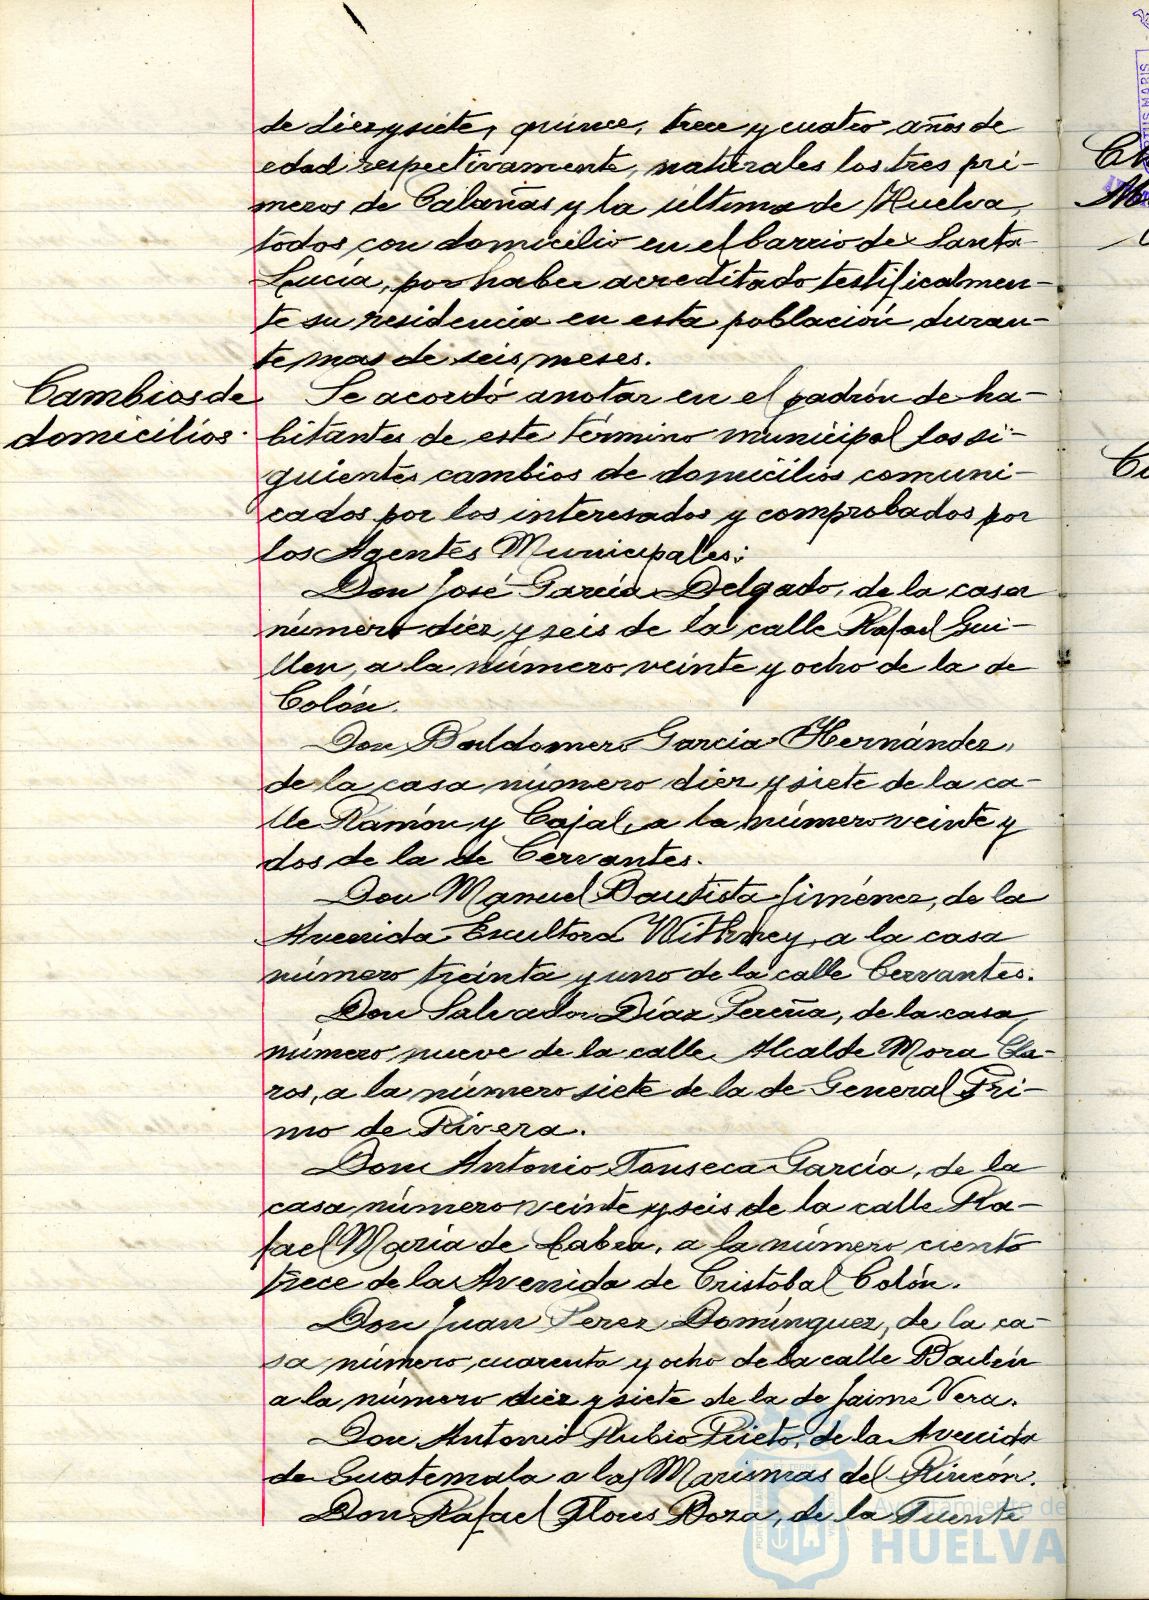 de diez y siete, quince, trece y cuatro años de
edad respectivamente, naturales los tres pri-
meros de Calañas y la última de Huelva,
todos con domicilio en el barrio de Santa
Lucía, por haber acreditado testificalmen-
te su residencia en esta población duran-
te mas de seis meses.
Cambios de
domicilios.
Se acordó anotar en el padrón de ha-
bitantes de este término municipal los si-
guientes cambios de domicilios comuni-
cados por los interesados y comprobados por
los Agentes Municipales:
Don José García Delgado, de la casa
número diez y seis de la calle Rafael Gui-
llen, a la número veinte y ocho de la de
Colón.
Don Baldomero García Hernández,
de la casa número diez y siete de la ca-
lle Ramón y Cajal, a la número veinte y
dos de la de Cervantes.
Don Manuel Bautista Jiménez, de la
Avenida Escultora Withney, a la casa
número treinta y uno de la calle Cervantes.
Don Salvador Díaz Pereña, de la casa
número nueve de la calle Alcalde Mora Cla-
ros, a la número siete de la de General Pri-
mo de Rivera.
Don Antonio Fonseca García, de la
casa número veinte y seis de la calle Ra-
fael María de Labra, a la número ciento
trece de la Avenida de Cristobal Colón.
Don Juan Perez Domínguez, de la ca-
sa número cuarenta y ocho de la calle Bailén
a la número diez y siete de la de Jaime Vera.
Don Antonio Rubio Prieto, de la Avenida
de Guatemala a las Marismas del Rincón.
Don Rafael Flores Boza, de la Fuente
Ayuntamiento de
HUELVA